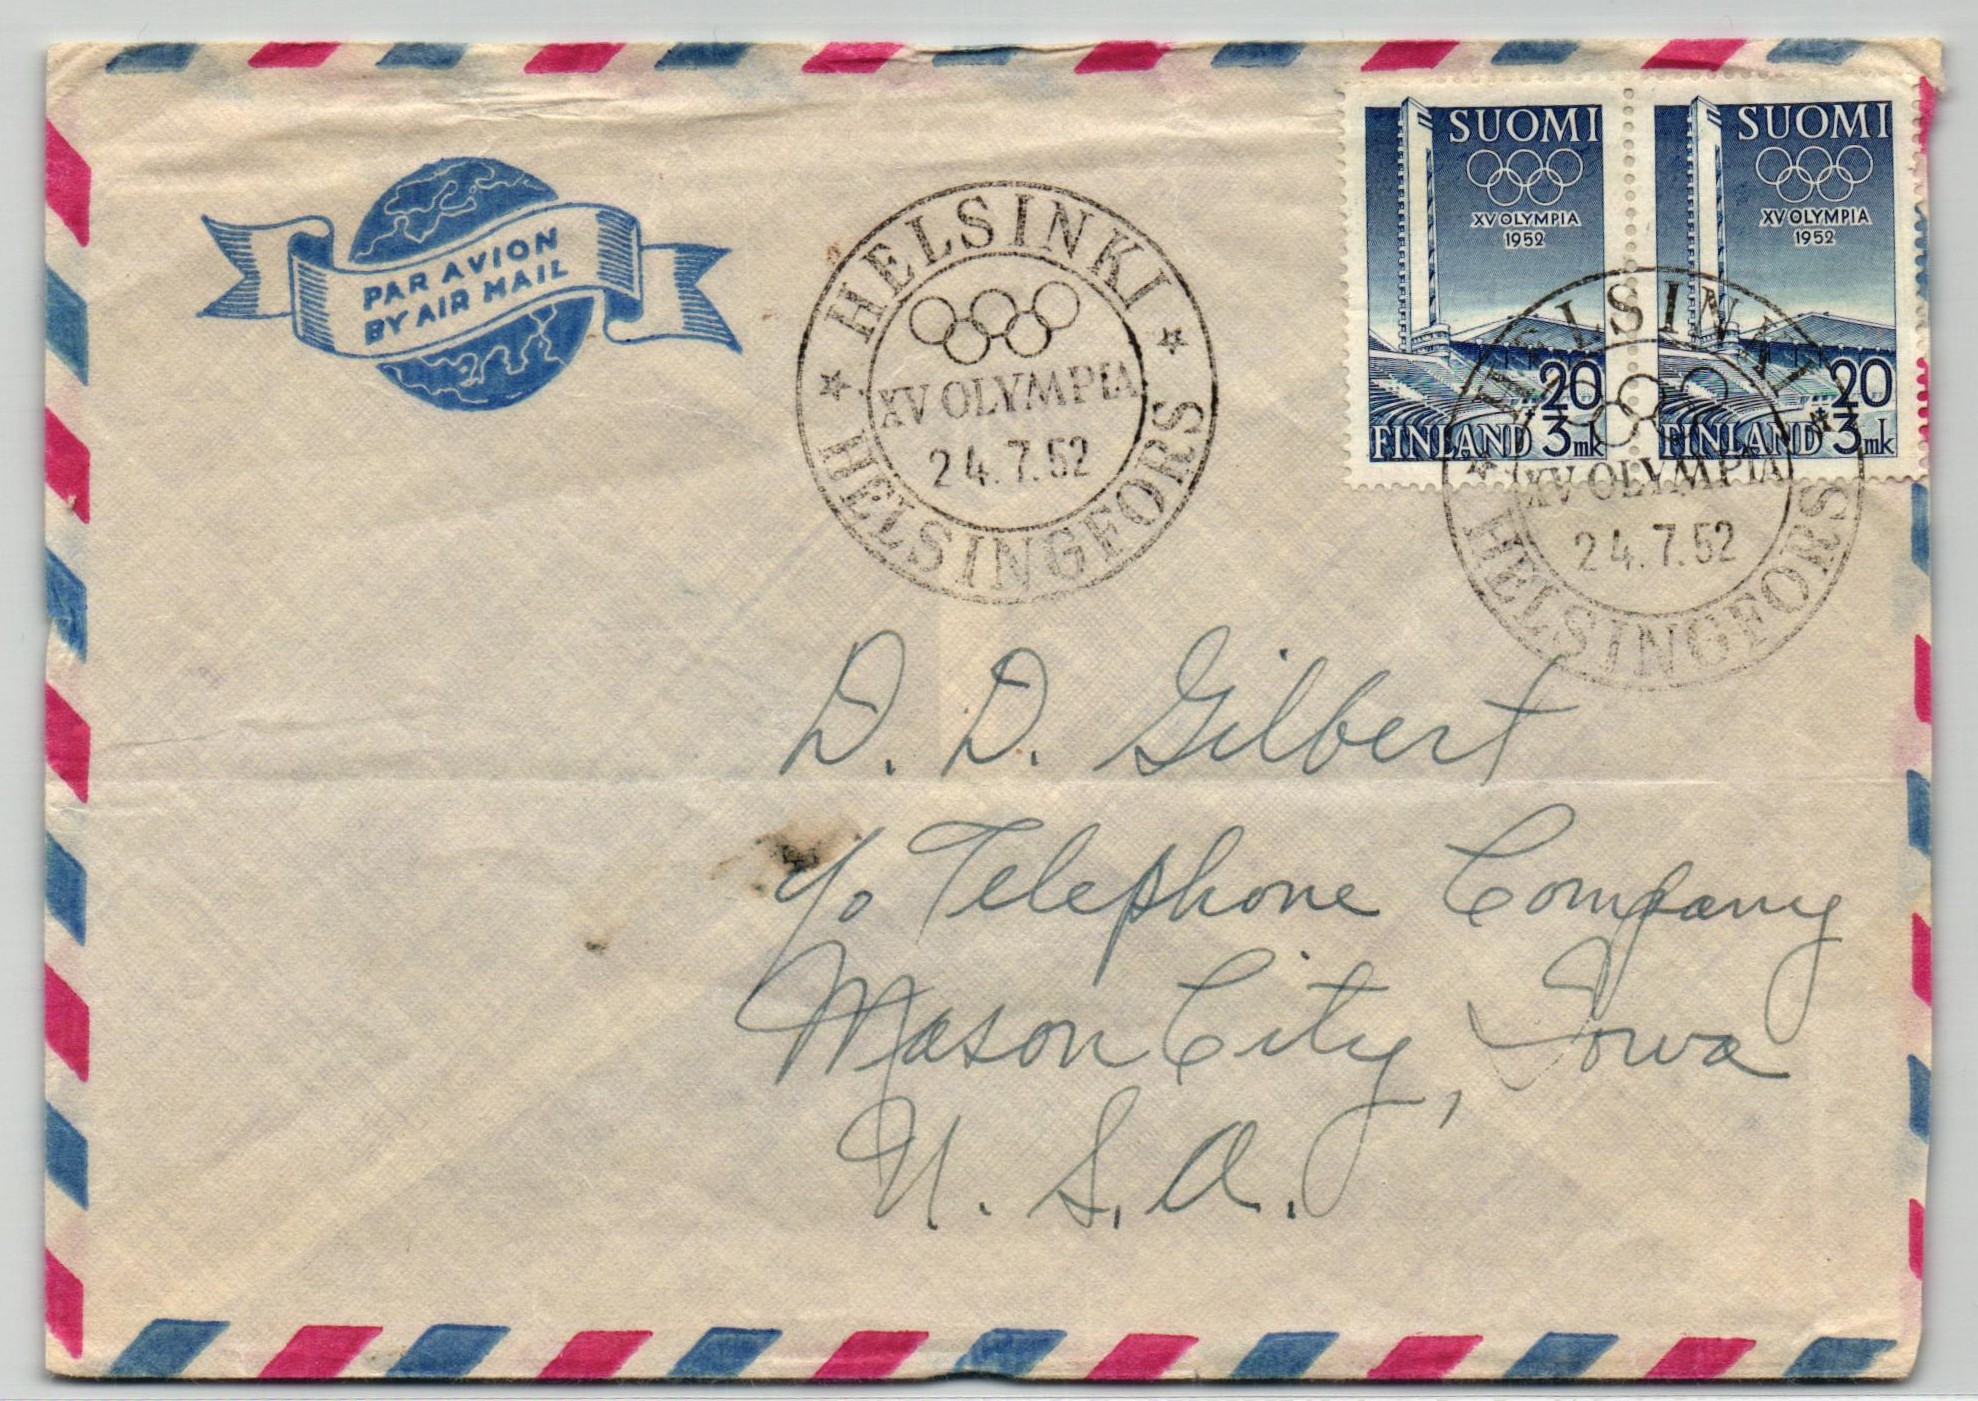 PAR AVION
BY AIR MAIL
HELSINKI
XV OLYMPIA
24.7.52
HELSINGFORS
SUOMI
XV OLYMPIA
1952
20
+
3 mk
FINLAND
SUOMI
XV OLYMPIA
1952
20
+
3 mk
FINLAND
HELSINKI
XV OLYMPIA
24.7.52
HELSINGFORS
D. D. Gilbert
c/o Telephone Company
Mason City, Iowa
U. S. A.